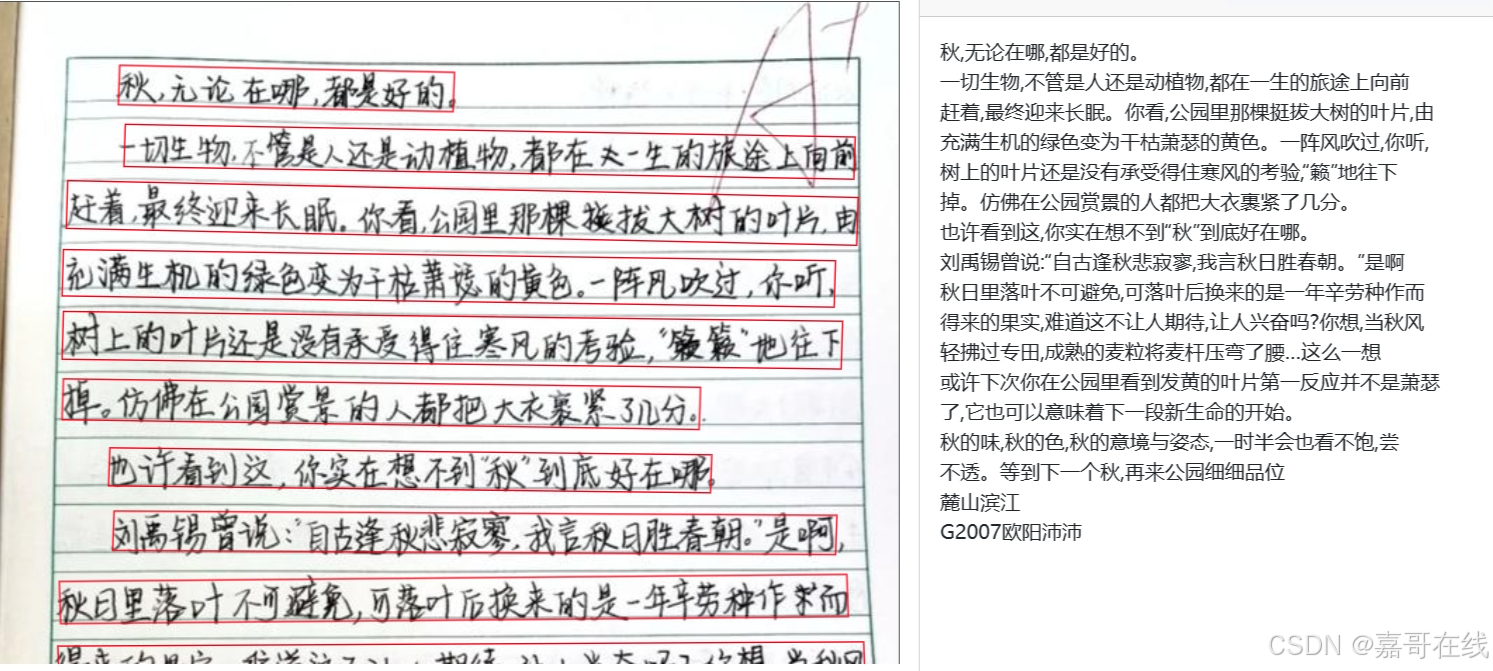 A+
秋,无论在哪,都是好的。
一切生物,不管是人还是动植物,都在一生的旅途上向前
赶着,最终迎来长眠。你看,公园里那棵挺拔大树的叶片,由
充满生机的绿色变为干枯萧瑟的黄色。一阵风吹过,你听,
树上的叶片还是没有承受得住寒风的考验,“簌簌”地往下
掉。仿佛在公园赏景的人都把大衣裹紧了几分。
也许看到这,你实在想不到“秋”到底好在哪。
刘禹锡曾说:“自古逢秋悲寂寥,我言秋日胜春朝。”是啊,
秋日里落叶不可避免,可落叶后换来的是一年辛劳种作而
秋,无论在哪,都是好的。
一切生物,不管是人还是动植物,都在一生的旅途上向前
赶着,最终迎来长眠。你看,公园里那棵挺拔大树的叶片,由
充满生机的绿色变为干枯萧瑟的黄色。一阵风吹过,你听,
树上的叶片还是没有承受得住寒风的考验,“籁”地往下
掉。仿佛在公园赏景的人都把大衣裹紧了几分。
也许看到这,你实在想不到“秋”到底好在哪。
刘禹锡曾说:“自古逢秋悲寂寥,我言秋日胜春朝。”是啊
秋日里落叶不可避免,可落叶后换来的是一年辛劳种作而
得来的果实,难道这不让人期待,让人兴奋吗?你想,当秋风
轻拂过专田,成熟的麦粒将麦杆压弯了腰...这么一想
或许下次你在公园里看到发黄的叶片第一反应并不是萧瑟
了,它也可以意味着下一段新生命的开始。
秋的味,秋的色,秋的意境与姿态,一时半会也看不饱,尝
不透。等到下一个秋,再来公园细细品位
麓山滨江
G2007欧阳沛沛
CSDN @嘉哥在线